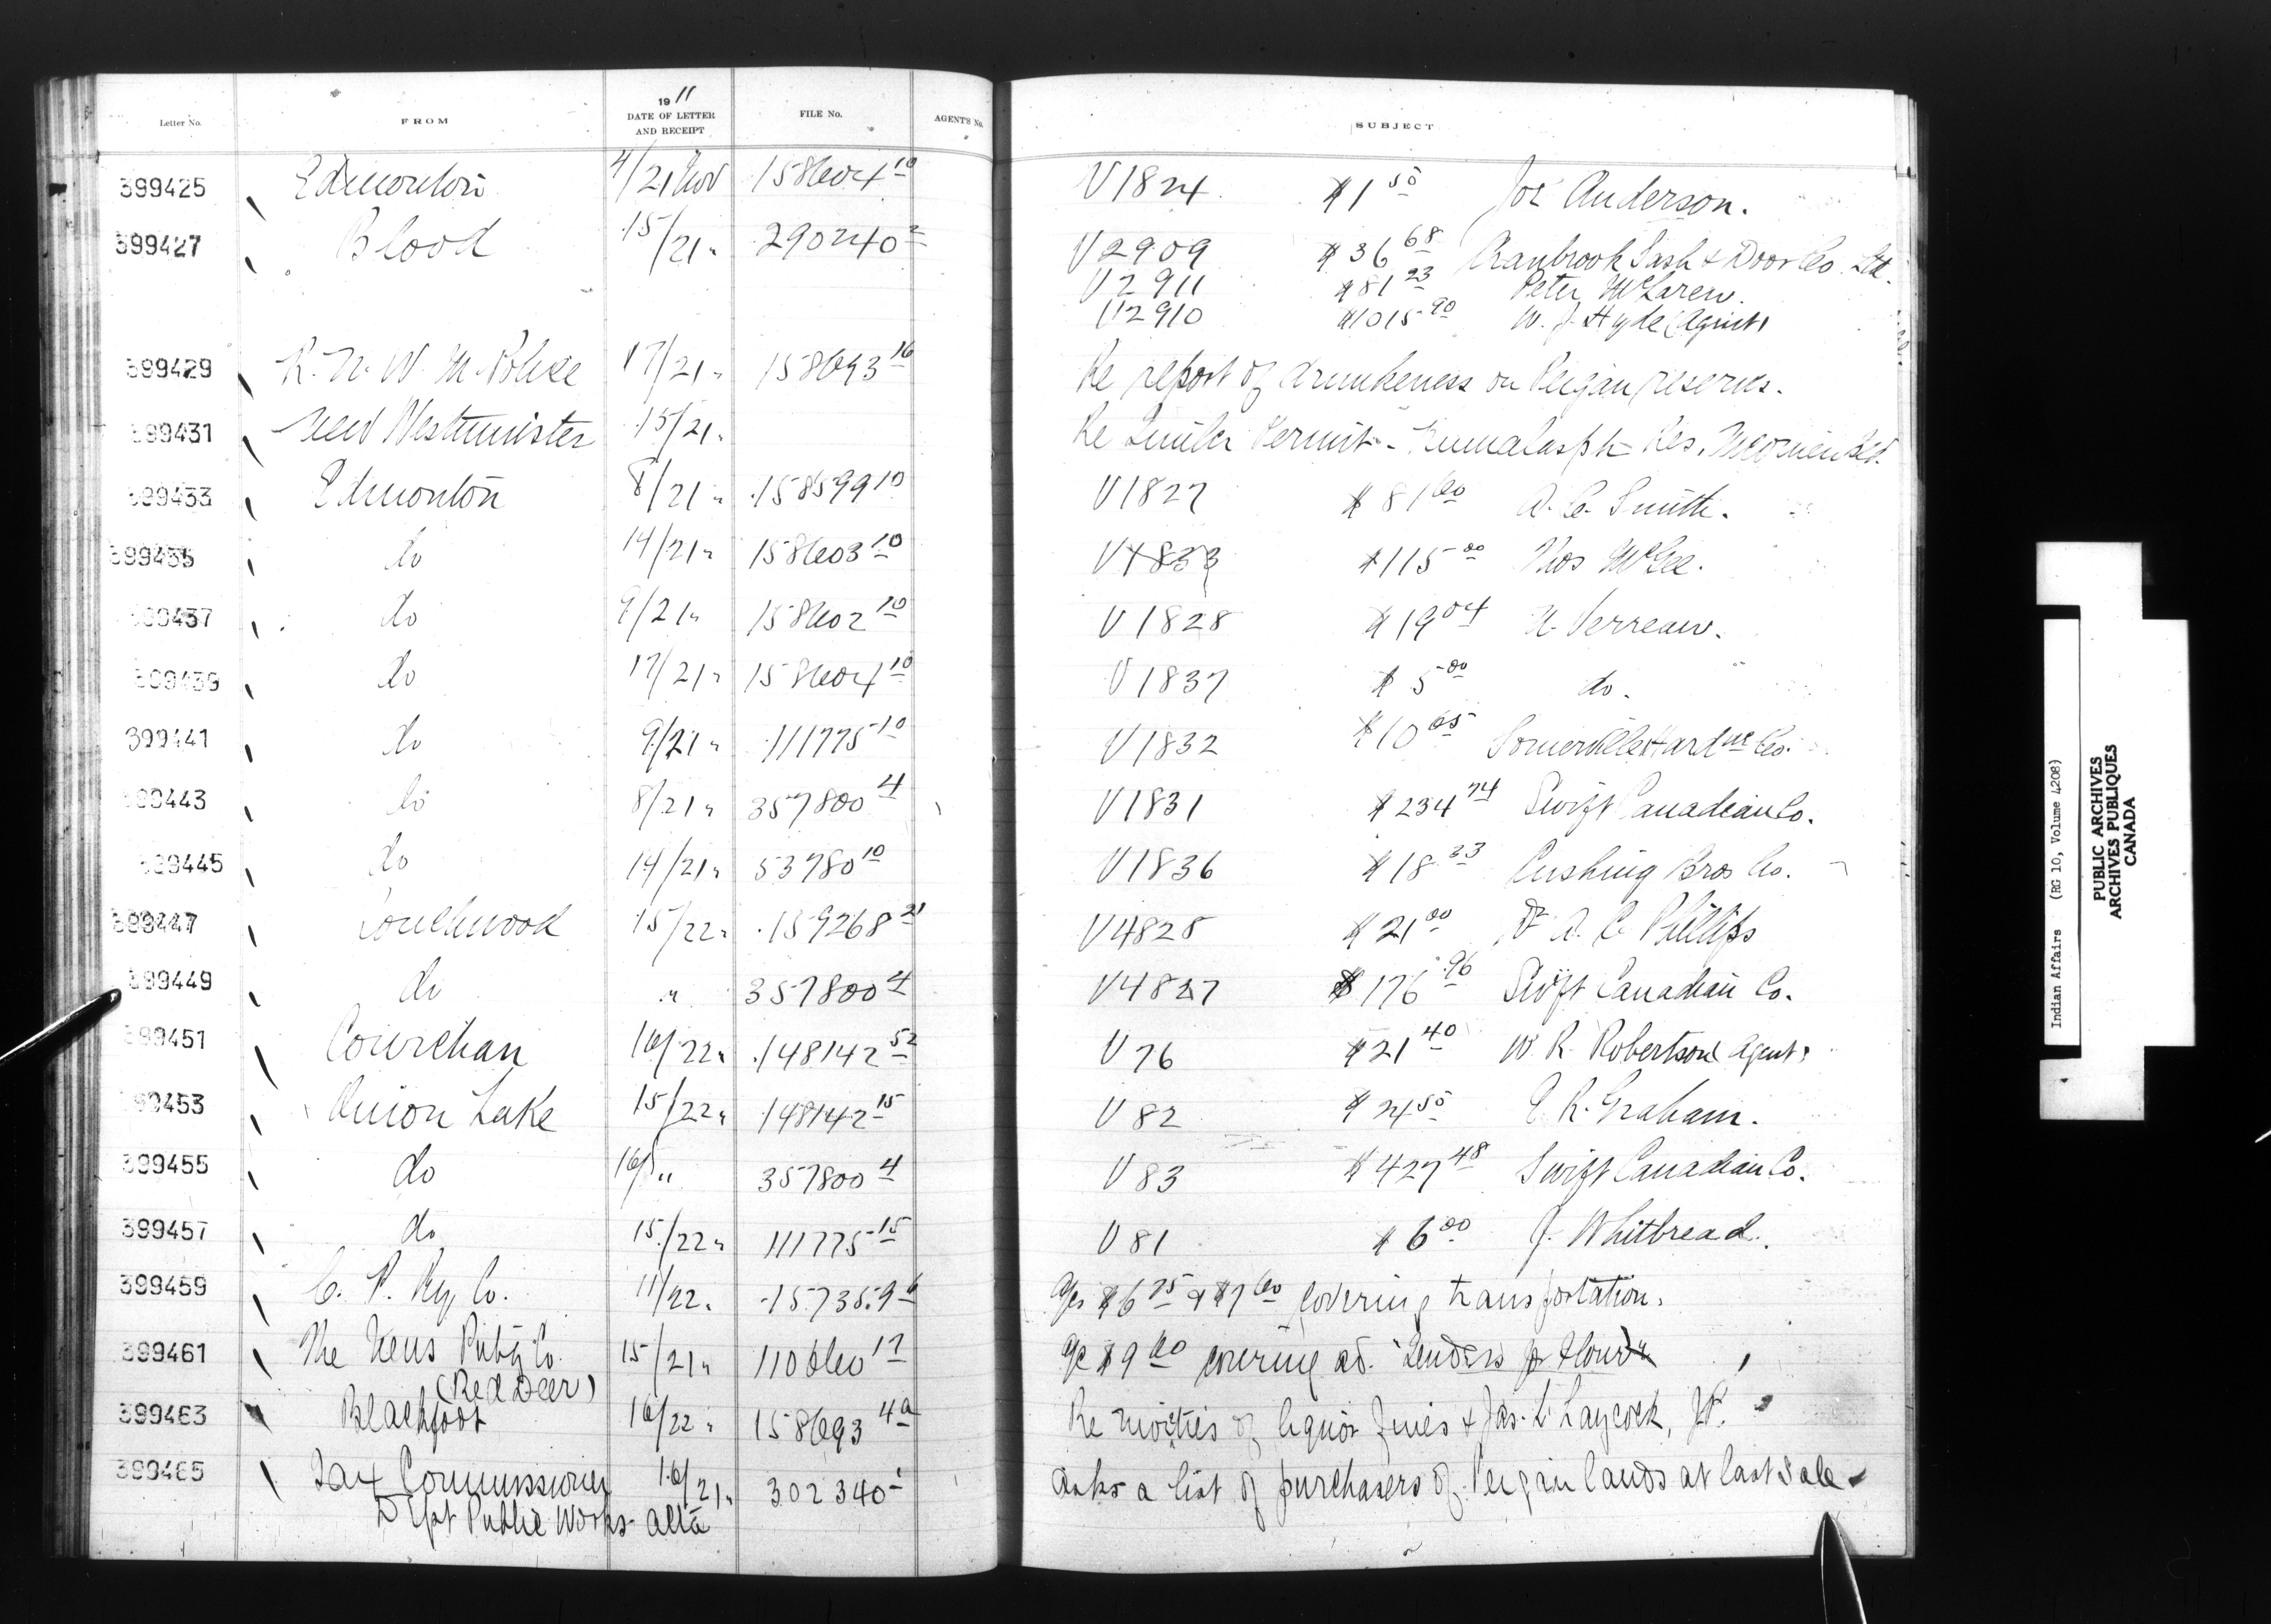 Letter No. FROM 1911 DATE OF LETTER AND RECEIPT FILE No. AGENT'S No. SUBJECT
399425 Edmonton 4/21 Nov 158604 10 V1824 $1 50 Joe Anderson.
399427 Blood 15/21 " 290240 2 V2909 $36 68 Cranbrook Sash & Door Co. Ltd.
V2911 $81 23 Peter McLaren.
V2910 $1015 90 W. J. Hyde (Agent)
399429 R. N. W. M. Police 17/21 " 158693 16 Re report of drunkeness on Peigan reserves.
399431 New Westminister 15/21 " Re Timber Permit - Res.
399433 Edmonton 8/21 " 158599 10 V1827 $81 60 A. C. Smith.
399435 do 14/21 " 158603 10 V1833 $115 00 Thos McGee.
399437 do 9/21 " 158602 10 V1828 $19 04 Verreau.
399439 do 17/21 " 158604 10 V1837 $5 00 do.
399441 do 9/21 " 111775 10 V1832 $10 65 Somerville Hardwe Co.
399443 do 8/21 " 357800 4 V1831 $234 74 Swift Canadian Co.
399445 do 14/21 " 53780 10 V1836 $18 23 Cushing Bros Co.
399447 Touchwood 15/22 " 159268 21 V4828 $21 00 Dr A. C. Phillips
399449 do " 357800 4 V4827 $176 96 Swift Canadian Co.
399451 Cowichan 16/22 " 148142 52 V76 $21 40 W. R. Robertson (Agent)
399453 Onion Lake 15/22 " 148142 15 V82 $24 50 E. R. Graham.
399455 do 16/ " 357800 4 V83 $427 48 Swift Canadian Co.
399457 do 15/22 " 111775 15 V81 $6 00 J. Whitbread.
399459 C. P. Ry Co. 11/22 " 157359 6 a/cs $6 75 & $7 60 covering transportation.
399461 The News Pubg Co. (Red Deer) 15/21 " 110660 17 a/c $9 60 covering ad. "Tenders for Flour"
399463 Blackfoot 16/22 " 158693 4a Re moieties of liquor fines & Jas. L. Laycock, J.P.
399465 Tax Commissioner 16/21 " 302340 1 Asks a list of purchasers of Peigan lands at last sale
Dept Public Works Alta
Indian Affairs (RG 10, Volume 4208)
PUBLIC ARCHIVES
ARCHIVES PUBLIQUES
CANADA